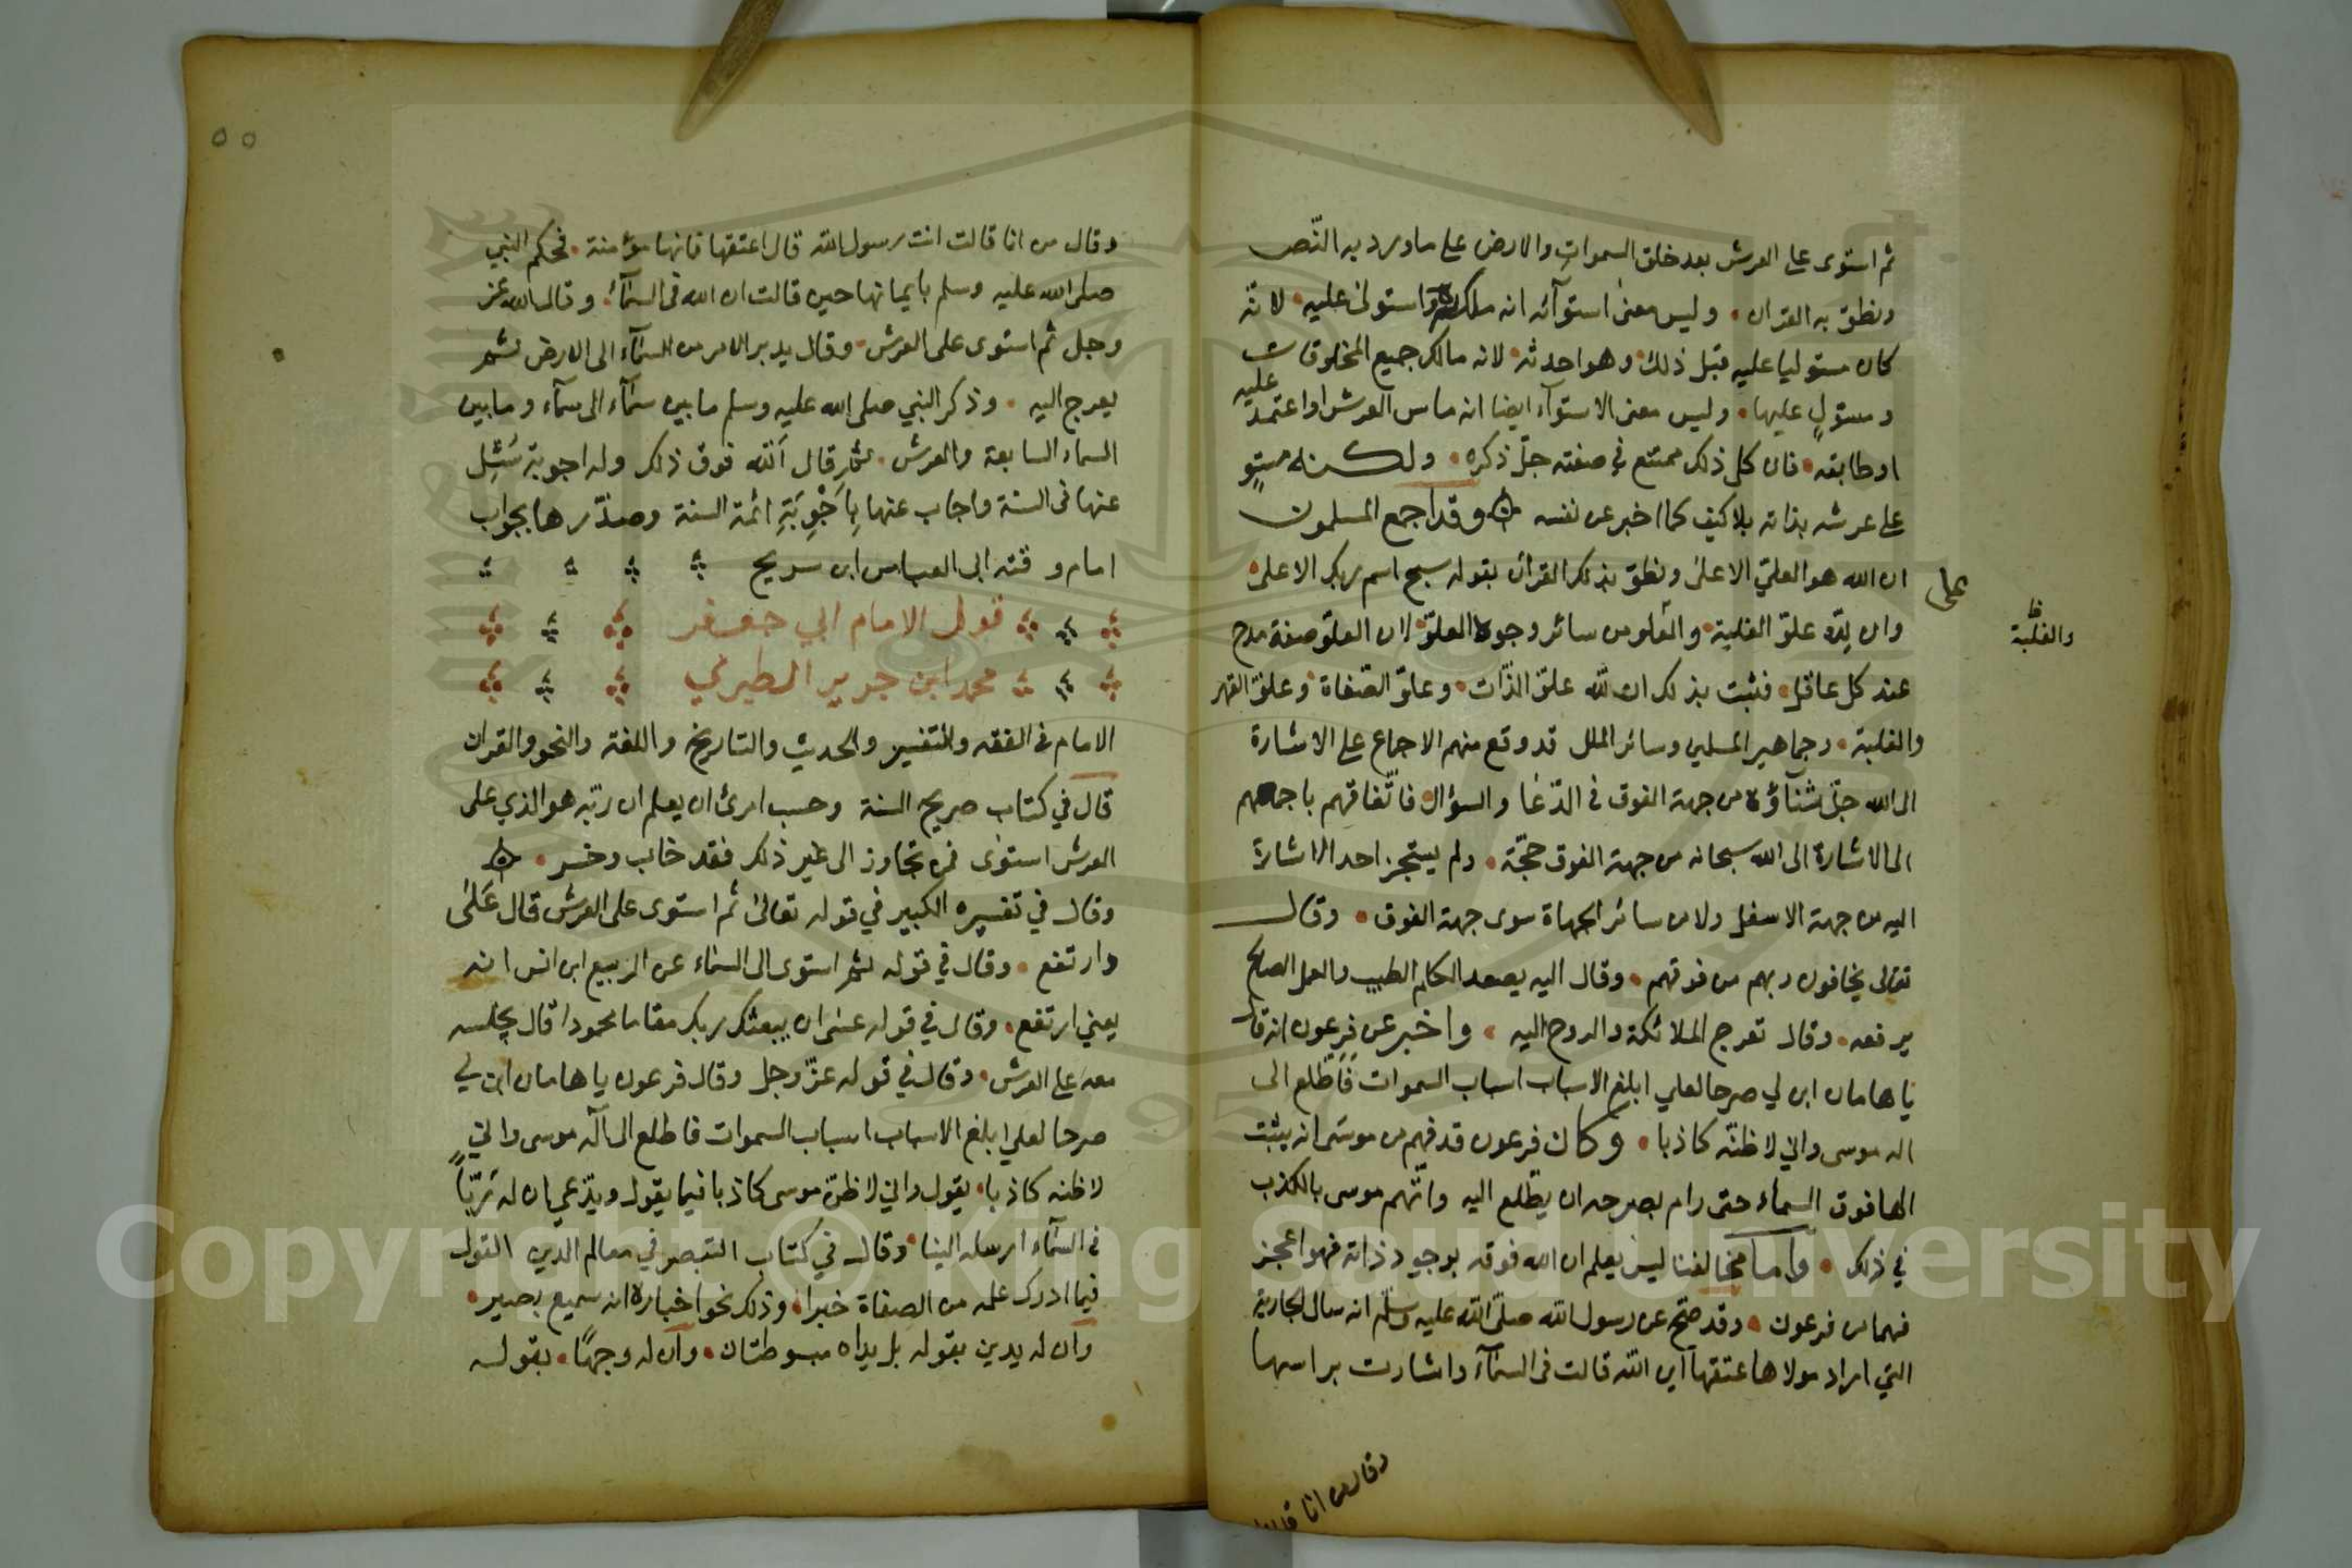 ثم استوى على العرش بعد خلق السموات والارض على ما ورد به النّص
ونطق به القران • وليس معنى استوآئه انه ملكه واستولى عليه • لانّه
كان مستوليا عليه قبل ذلك • وهو احدثه • لانه مالك جميع المخلوقات
ومستولٍ عليها • وليس معنى الاستوآء ايضا انه ماس العرش او اعتمد عليه
او طابقه • فان كل ذلك ممتنع في صفته جلّ ذكره • ولكنه مستوٍ
على عرشه بذاته بلا كيف كما اخبر عن نفسه وقد اجمع المسلمون
على
ان الله هو العليّ الاعلى ونطق بذلك القرآن بقوله سبح اسم ربك الاعلى •
وان للّه علوّ الغلبة • والعلو من سائر وجوه العلوّ • لان العلوّ صفة مدح
والغلبة
ظ
عند كل عاقل • فثبت بذلك ان للّه علوّ الذّات • وعلوّ الصّفاة • وعلوّ القهر
والغلبة • وجماهير المسلمين وسائر الملل قد وقع منهم الاجماع على الاشارة
الى الله جلّ ثنآؤه من جهة الفوق في الدّعا والسؤال • فاتّفاقهم باجمعهم
الى الاشارة الى الله سبحانه من جهة الفوق حجّة • ولم يستجز احد الاشارة
اليه من جهة الاسفل ولا من سائر الجهاة سوى جهة الفوق • وقال
تعالى يخافون ربهم من فوقهم • وقال اليه يصعد الكلم الطيب والعمل الصالح
يرفعه • وقال تعرج الملائكة والروح اليه • واخبر عن فرعون انه قال
يا هامان ابن لي صرحا لعلي ابلغ الاسباب اسباب السموات فَاَطَّلع الى
اله موسى واني لاظنّه كاذبا • وكان فرعون قد فهم من موسى انه يثبت
الها فوق السماء حتى رام بصرحه ان يطّلع اليه واتّهم موسى بالكذب
في ذلك • واما مخالفنا ليس يعلم ان الله فوقه بوجود ذاته فهو اعجز
فهما من فرعون • وقد صحّ عن رسول الله صلّى الله عليه وسلّم انه سال الجارية
التي اراد مولاها عتقها اين الله قالت في السمآء واشارت براسها
وقال من انا قالت
٥٥
وقال من انا قالت انت رسول الله قال اعتقها فانها مؤمنة • فحكم النبي
صلى الله عليه وسلم بايمانها حين قالت ان الله في السمآء • وقال الله عز
وجل ثم استوى على العرش • وقال يدبر الامر من السمآء الى الارض ثم
يعرج اليه • وذكر النبي صلى الله عليه وسلم ما بين سمآء الى سمآء وما بين
السماء السابعة والعرش • ثم قال اَللّه فوق ذلك وله اجوبة سُئِل
عنها في السنة واجاب عنها بِاَجْوِبَةِ ائمة السنة وصدّرها بجواب
امام وقته ابي العباس ابن سريج
قول الامام ابي جعفر
محمد ابن جرير الطبري
الامام في الفقه والتفسير والحديث والتاريخ واللغة والنحو والقران
قال في كتاب صريح السنة وحسب امرئ ان يعلم ان ربّه هو الذي على
العرش استوى فمن تجاوز الى غير ذلك فقد خاب وخسر •
وقال في تفسيره الكبير في قوله تعالى ثم استوى على العرش قال عَلَى
وارتفع • وقال في قوله ثم استوى الى السماء عن الربيع ابن انس انه
يعني ارتفع • وقال في قوله عسى ان يبعثك ربك مقاما محمودا قال يجلسه
معه على العرش • وقال في قوله عزّ وجل وقال فرعون يا هامان ابن لي
صرحا لعلي ابلغ الاسباب اسباب السموات فاطلع الى آله موسى واني
لاظنه كاذبا • يقول واني لاظنّ موسى كاذبا فيما يقول ويدّعي ان له رَبّاً
في السمآء ارسله الينا • وقال في كتاب التبصر في معالم الدين القول
فيما ادرك علمه من الصفاة خبرا • وذلك نحو اخباره انه سميع بصير •
وان له يدين بقوله بل يداه مبسوطتان • وان له وجهًا • بقوله
Copyright © King Saud University
1957